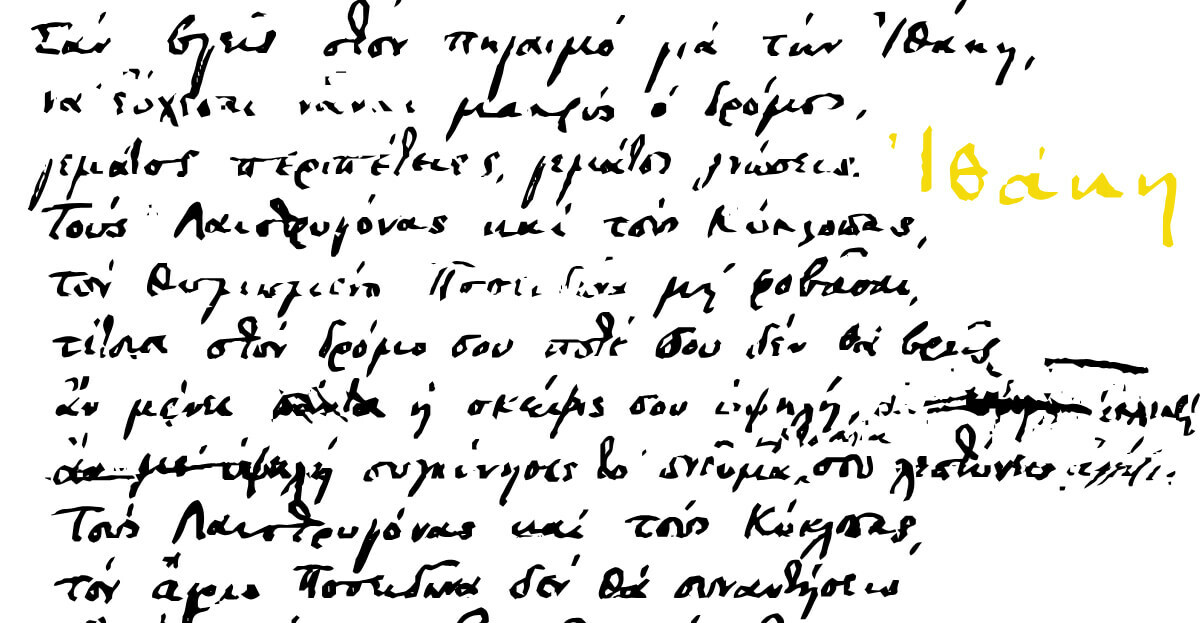 Σὰν βγεῖς στὸν πηγαιμὸ γιὰ τὴν Ἰθάκη,
νὰ εὔχεσαι νἆναι μακρὺς ὁ δρόμος,
γεμάτος περιπέτειες, γεμάτος γνώσεις.
Ἰθάκη
Τοὺς Λαιστρυγόνας καὶ τοὺς Κύκλωπας,
τὸν θυμωμένο Ποσειδῶνα μὴ φοβᾶσαι,
τέτοια στὸν δρόμο σου ποτέ σου δὲν θὰ βρεῖς,
ἂν μένει ἡ σκέψις σου ὑψηλή, ἐκλεκτὴ
συγκίνησις τὸ πνεῦμα σου
Τοὺς Λαιστρυγόνας καὶ τοὺς Κύκλωπας,
τὸν ἄγριο Ποσειδῶνα δὲν θὰ συναντήσεις